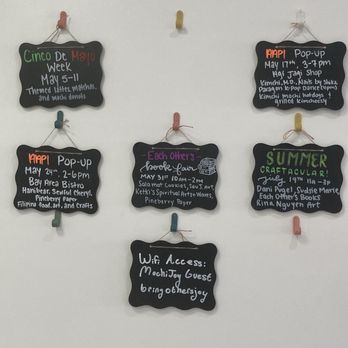 Cinco De Mayo
Week
May 5-11
Themed lattes, matchas,
and mochi donuts
AAPI Pop-up
May 17th, 3-7pm
Hai Jagi Shop
Kimchi, M.D., Nails by
Paragon K-Pop Dance
Kimchi mochi hotdogs &
grilled Kimcheesy
AAPI Pop-up
May 24th, 2-6pm
Bay Area Bistro
Hanibear, Sewful Cheryl,
Pineberry Paper
Filipino food, art, and crafts
Each Other's
book fair
May 31st 10am-2pm
Salamat Cookies,
Ketki's Spiritual Artso Waves,
Pineberry Paper
SUMMER
CRAFTACULAR!
July 19th 11a-3p
Dani Pugel, Sudsie Marie,
Each Other's Books
Rina Nguyen Art
Wifi Access:
MochiJoy Guest
bringothersjoy